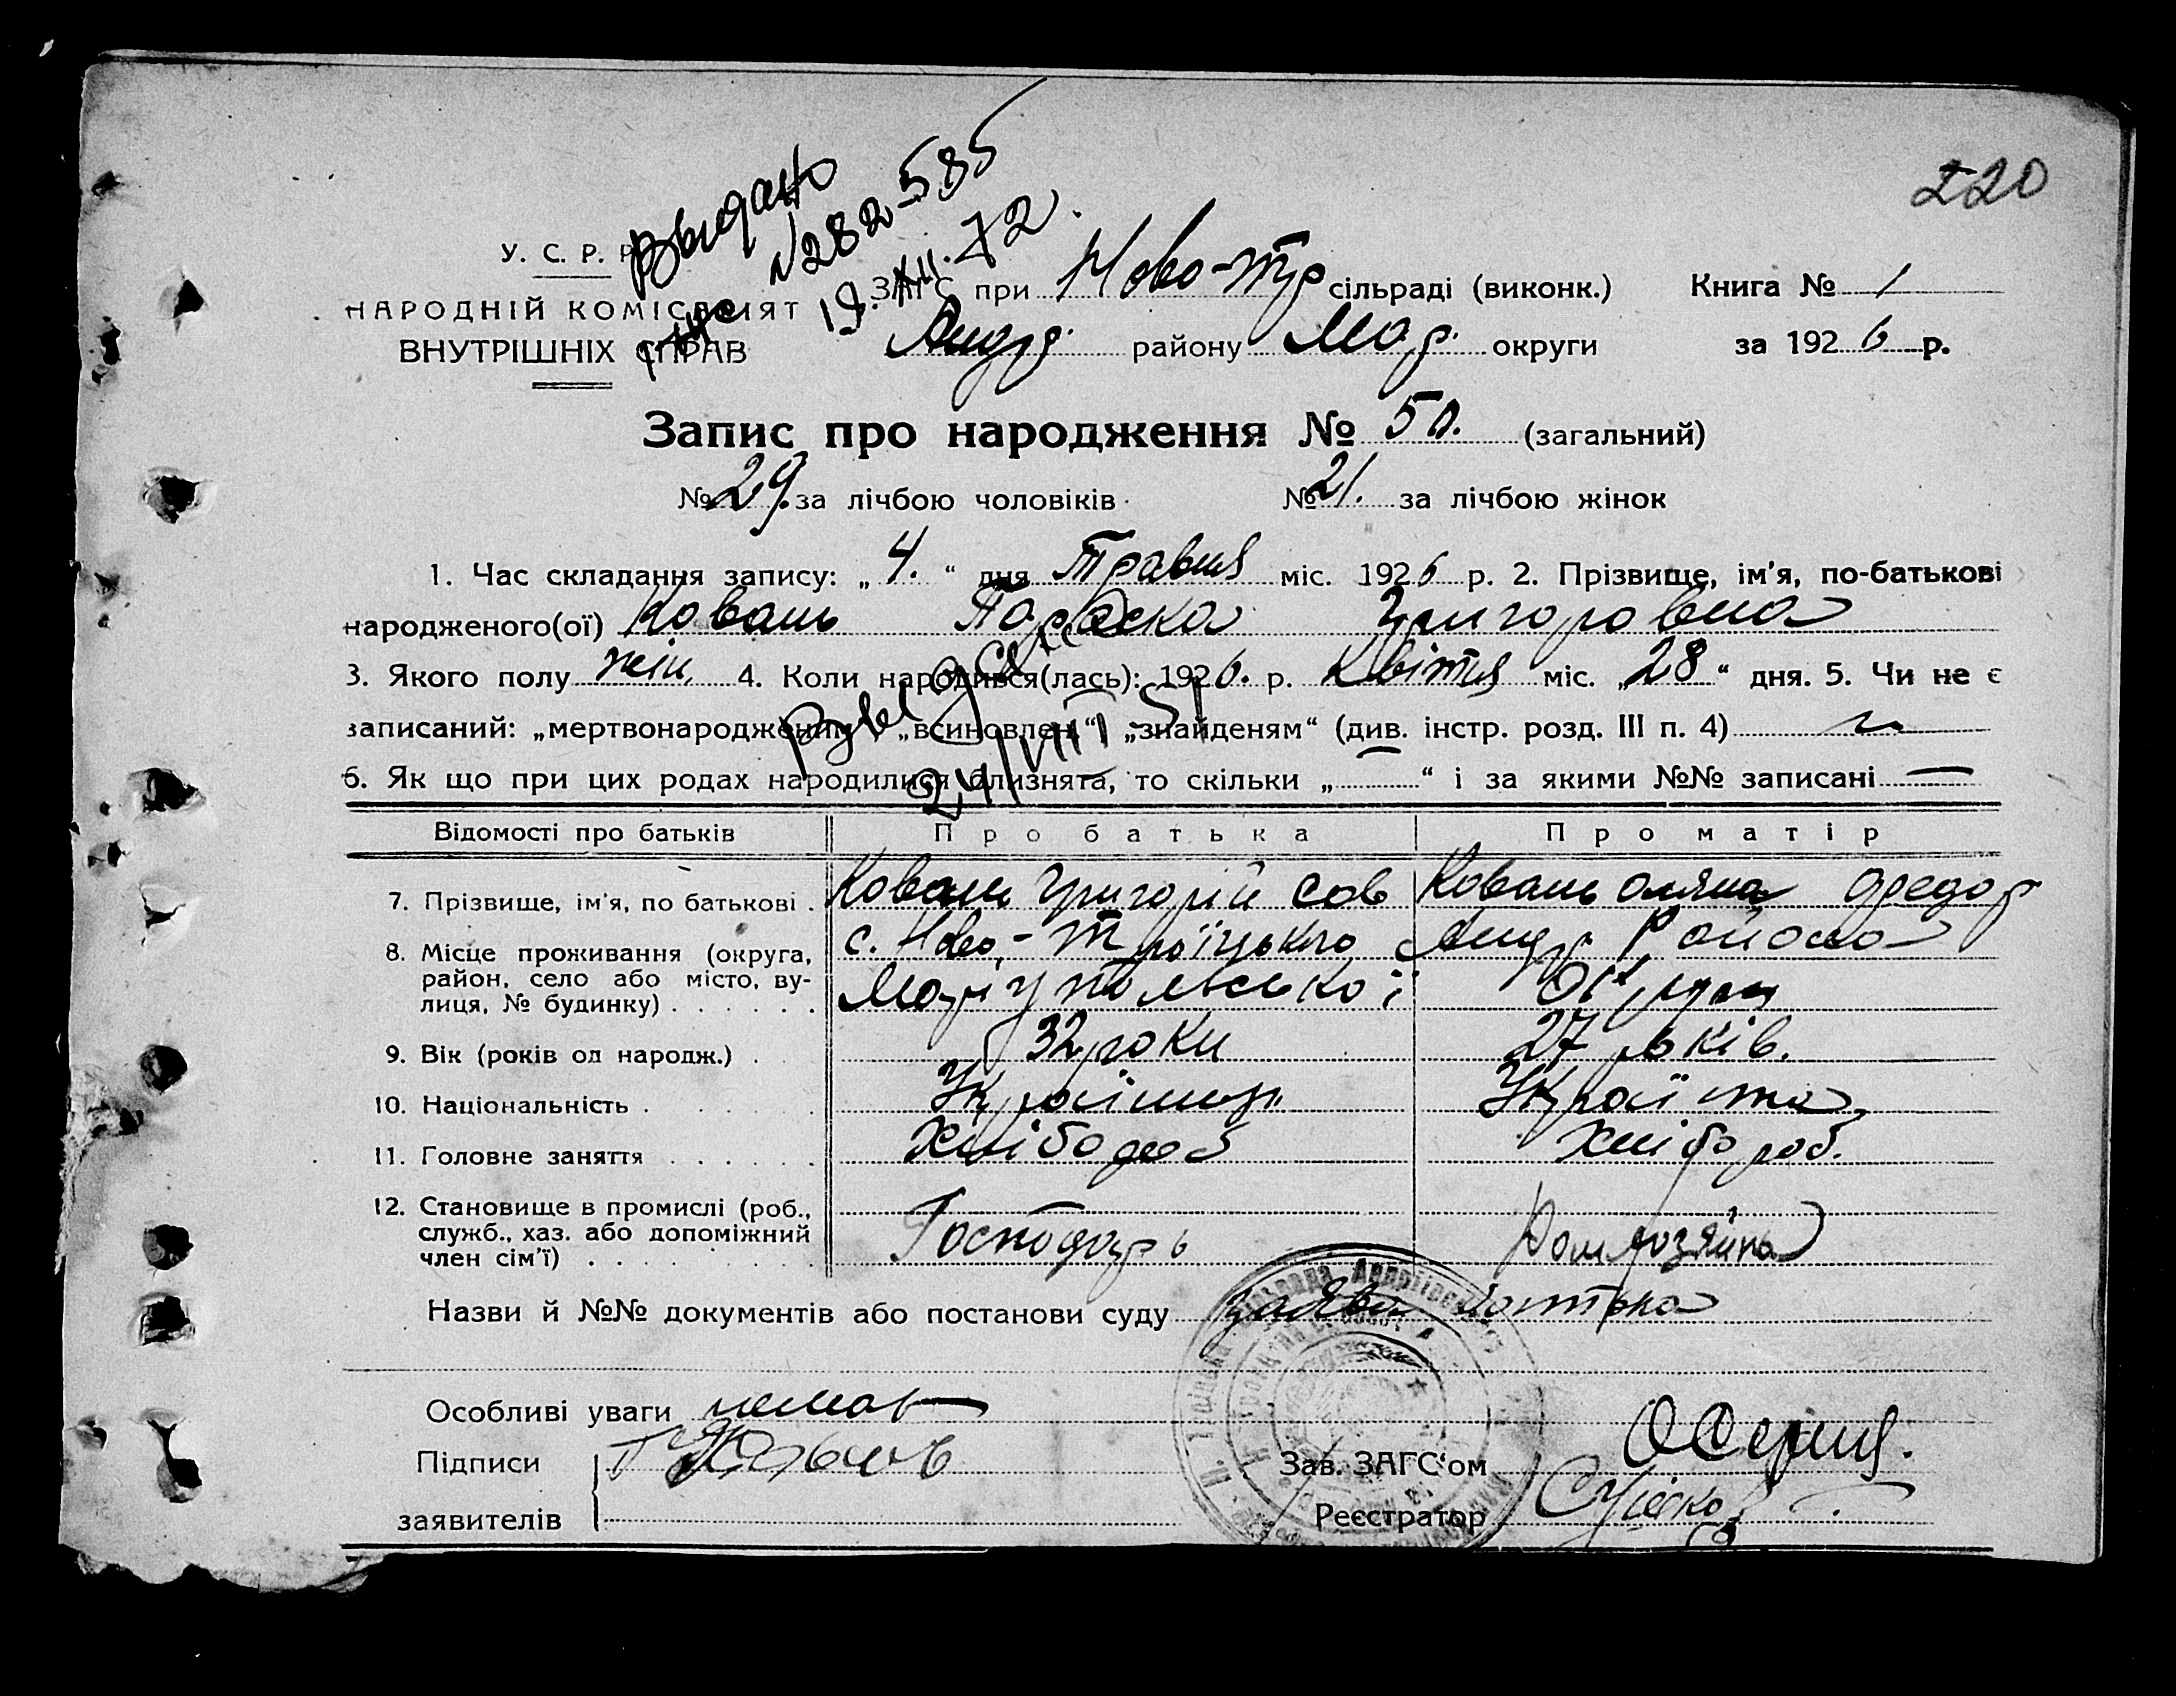 220
Выдано
№282-585
19.XII.72
У. С. Р. Р.
НАРОДНІЙ КОМІСАРІЯТ
ВНУТРІШНІХ СПРАВ
ЗАГС при Ново-Тр сільраді (виконк.) Книга № 1
Андр. району Мар. округи за 1926 р.
Запис про народження № 50. (загальний)
№ 29. за лічбою чоловіків № 21. за лічбою жінок
1. Час складання запису: „4.“ дня Травня міс. 1926 р. 2. Прізвище, ім'я, по-батькові
народженого(ої) Коваль Параска Григоровна
3. Якого полу жін. 4. Коли народився(лась): 1926. р. Квітня міс. „28“ дня. 5. Чи не є
записаний: „мертвонародженим“, „всиновлен.“ „знайденям“ (див. інстр. розд. III п. 4)
24/VIII 51
6. Як що при цих родах народилися близнята, то скільки „—“ і за якими №№ записані —
Відомості про батьків Про батька Про матір
7. Прізвище, ім'я, по батькові . Коваль Григорій Сав Коваль Оляна Федор
8. Місце проживання (округа, район, село або місто, вулиця, № будинку) . . . . . . с. Ново-Троїцького Андр Району
Маріупольської Округи
9. Вік (років од народж.) . 32 роки 27 років.
10. Національність . . . . . Українец. Українка
11. Головне заняття . . . . . . Хлібороб Хлібороб.
12. Становище в промислі (роб., служб., хаз. або допоміжний член сім'ї) . . . . Господарь Домхозяйка
Назви й №№ документів або постанови суду заява батька
Особливі уваги немає
Підписи Г Коваль
заявителів
Зав. ЗАГС'ом
Реєстратор